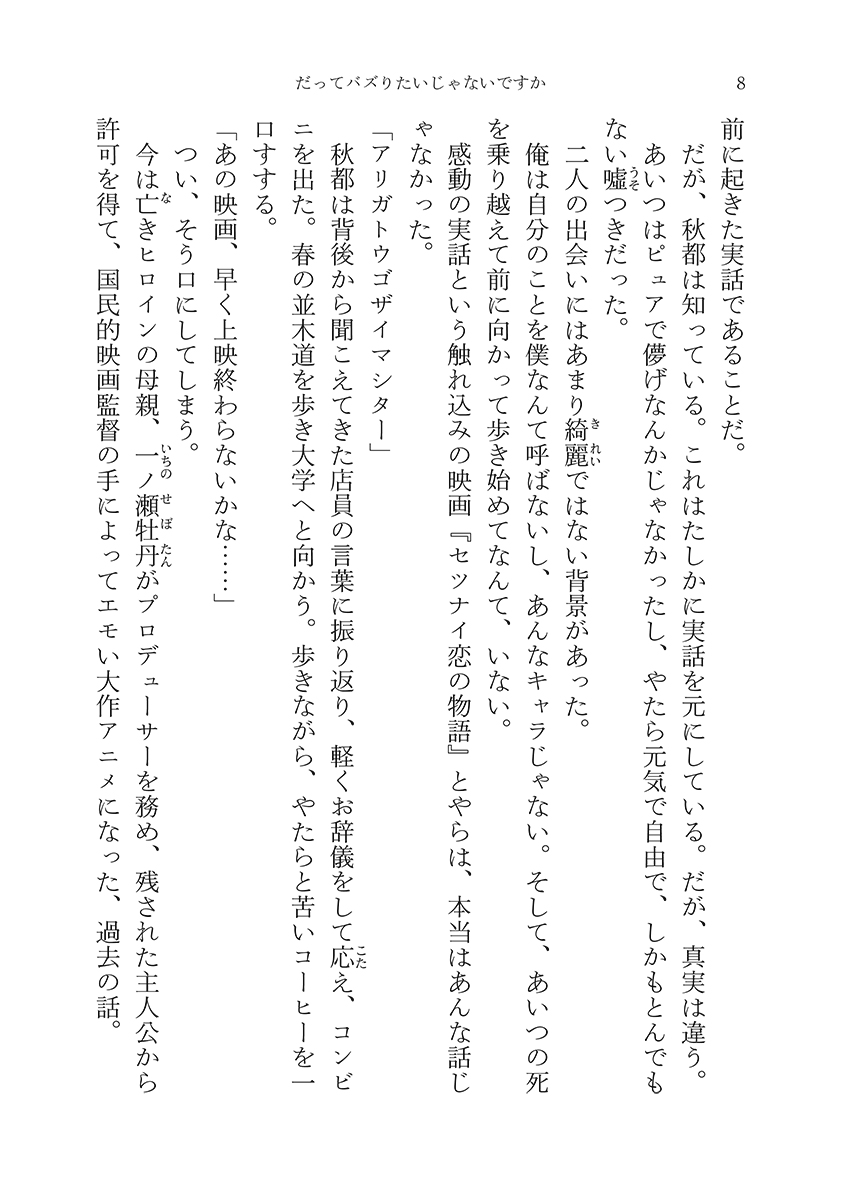 だってバズりたいじゃないですか
8
前に起きた実話であることだ。
だが、秋都は知っている。これはたしかに実話を元にしている。だが、真実は違う。
あいつはピュアで儚げなんかじゃなかったし、やたら元気で自由で、しかもとんでも
ない嘘つきだった。
うそ
二人の出会いにはあまり綺麗ではない背景があった。
きれい
俺は自分のことを僕なんて呼ばないし、あんなキャラじゃない。そして、あいつの死
を乗り越えて前に向かって歩き始めてなんて、いない。
感動の実話という触れ込みの映画『セツナイ恋の物語』とやらは、本当はあんな話じ
ゃなかった。
「アリガトウゴザイマシター」
秋都は背後から聞こえてきた店員の言葉に振り返り、軽くお辞儀をして応え、コンビ
こた
ニを出た。春の並木道を歩き大学へと向かう。歩きながら、やたらと苦いコーヒーを一
口すする。
「あの映画、早く上映終わらないかな……」
つい、そう口にしてしまう。
今は亡きヒロインの母親、一ノ瀬牡丹がプロデューサーを務め、残された主人公から
な いちのせぼたん
許可を得て、国民的映画監督の手によってエモい大作アニメになった、過去の話。